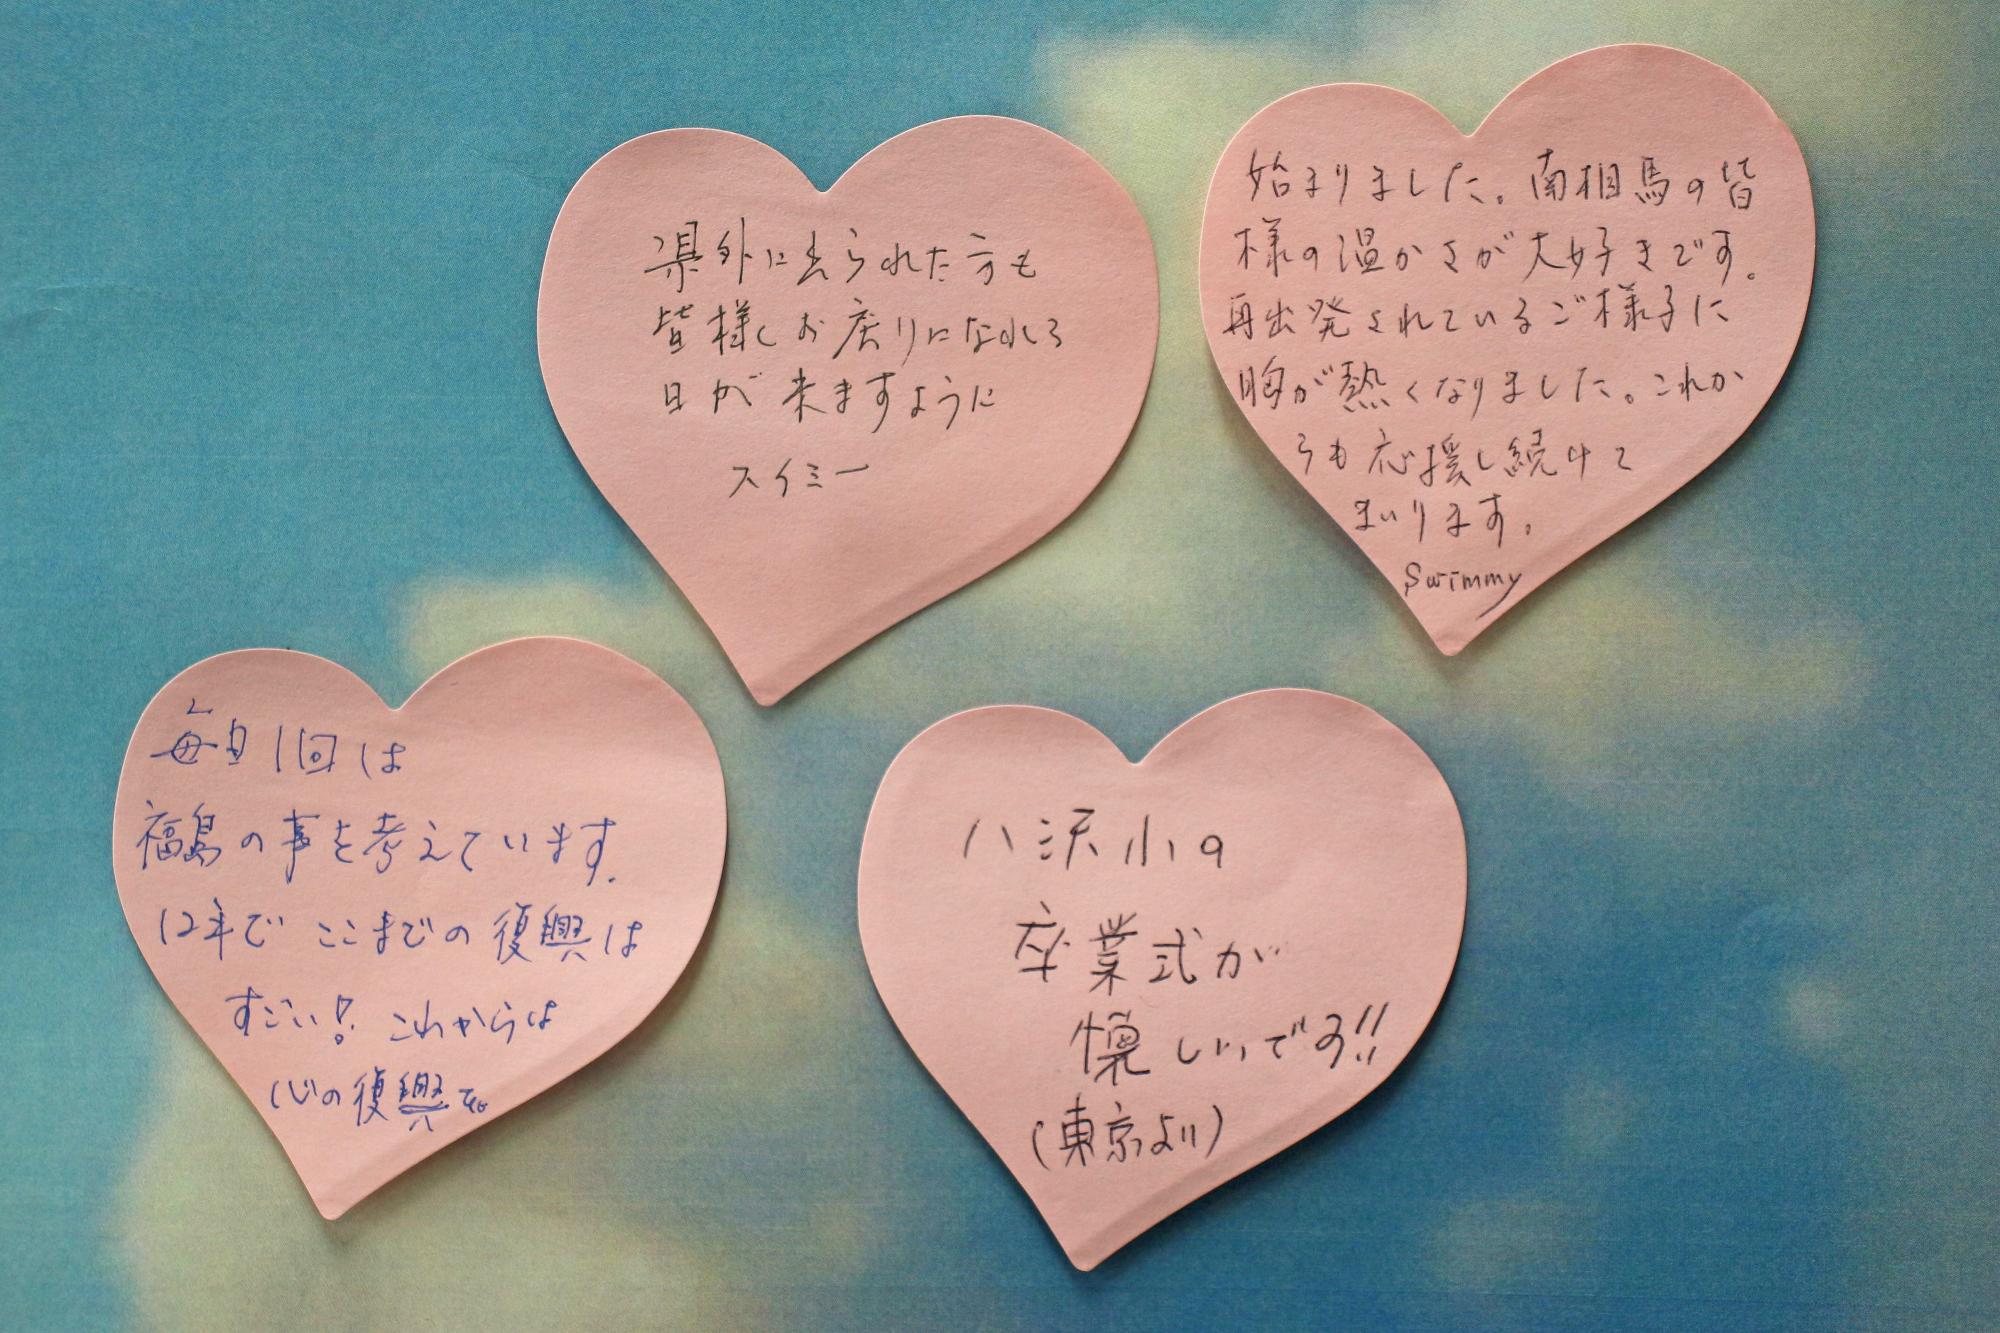 県外に出られた方も
皆様しお戻りになれる
日が来ますように
スイミー
始まりました。南相馬の皆
様の温かさが大好きです。
再出発されているご様子に
胸が熱くなりました。これか
らも応援し続けて
まいります。
Swimmy
毎日1回は
福島の事を考えています.
12年でここまでの復興は
すごい!これからは
心の復興を
八沢小の
卒業式が
懐しいです!!
(東京より)